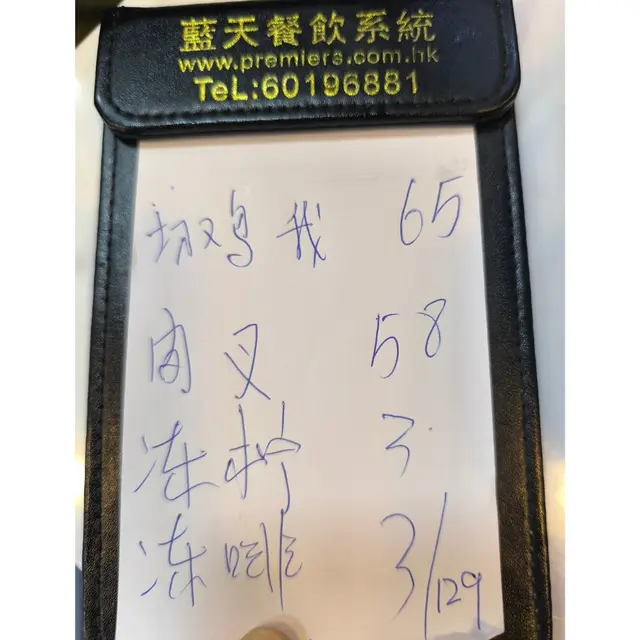 藍天餐飲系統
www.premiers.com.hk
TeL:60196881
鸡 65
叉 58
冻柠 3
冻啡 3/129